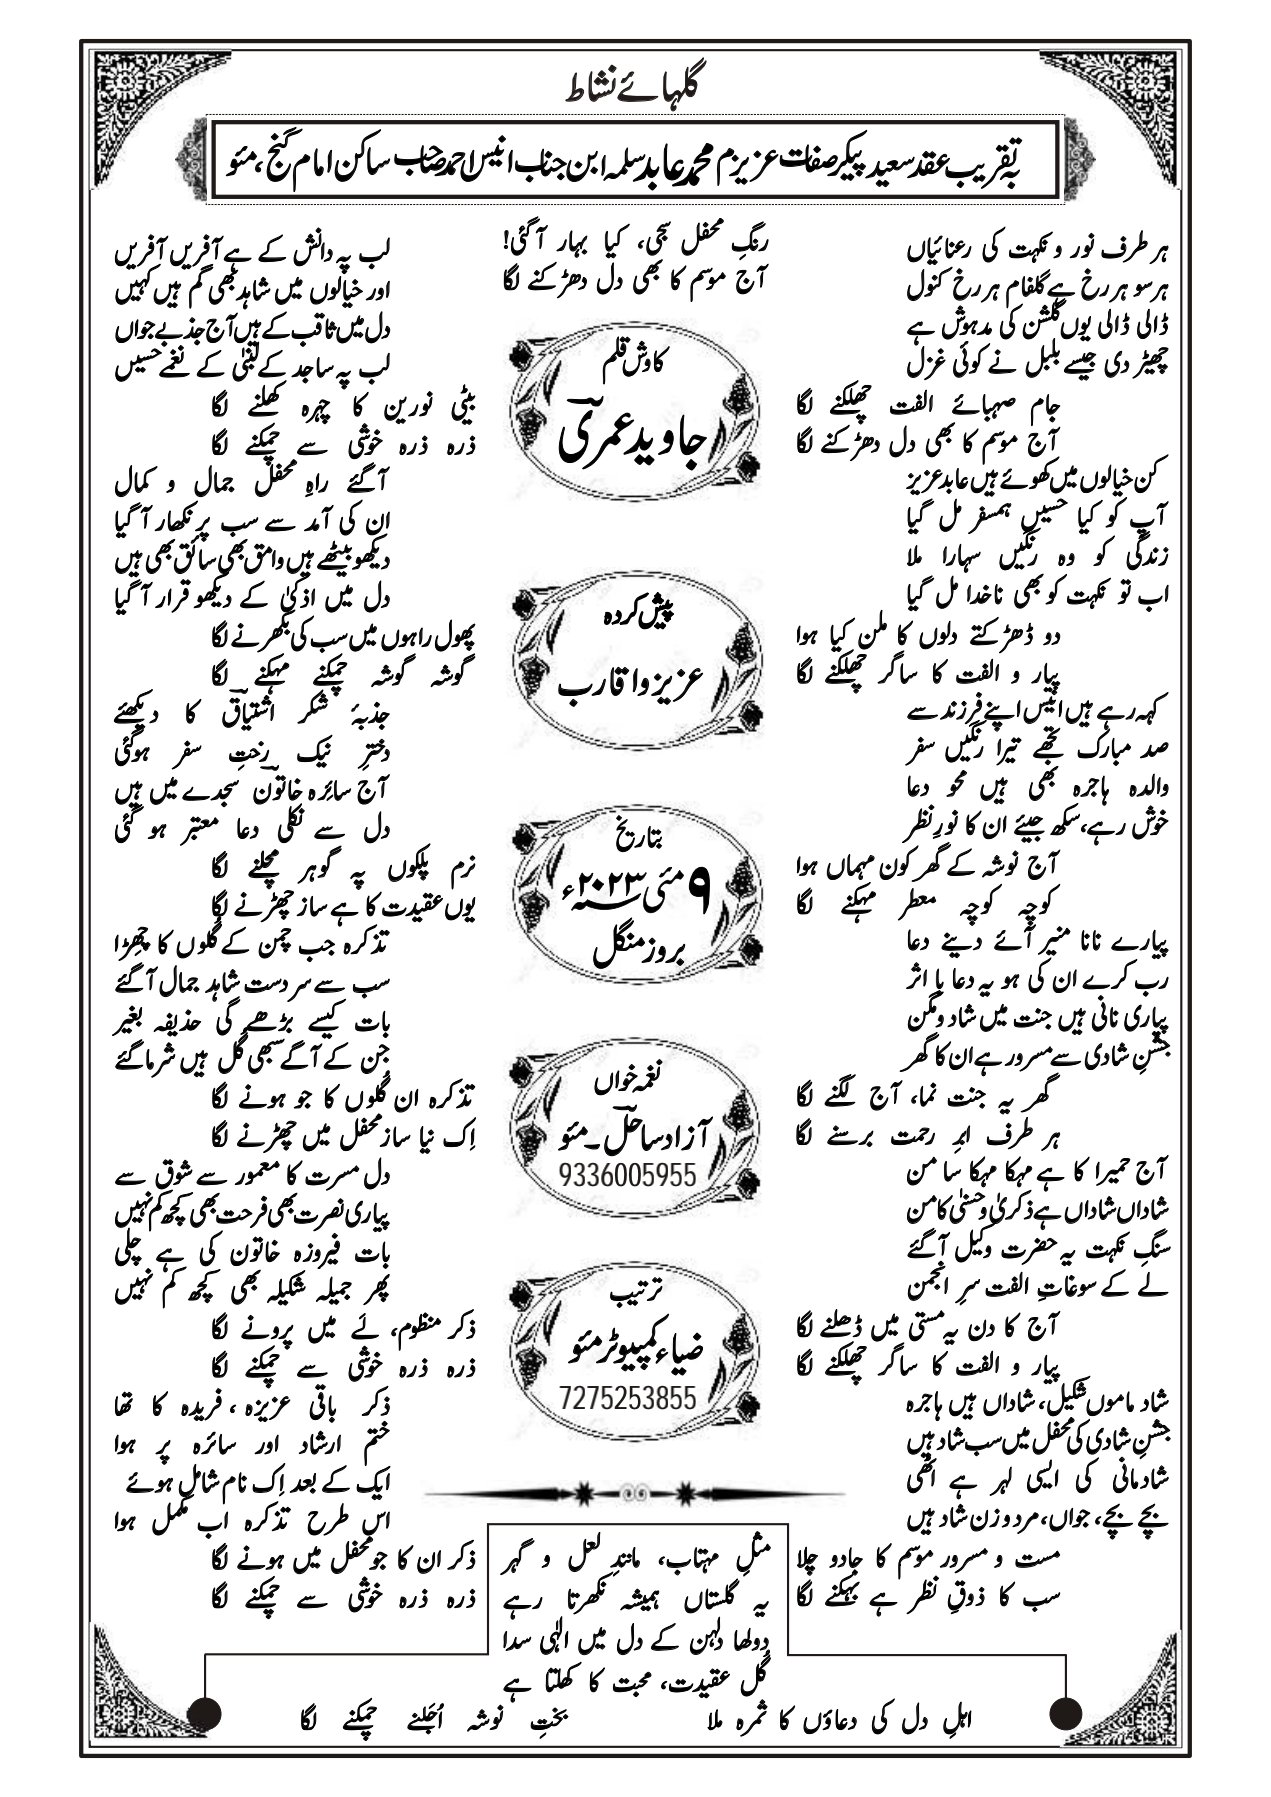 گلہائے نشاط
بہ تقریب عقد سعید پیکر صفات عزیزم محمد عابد سلمہ ابن جناب انیس احمد صاحب ساکن امام گنج، مئو
رنگِ محفل سجی، کیا بہار آگئی!
آج موسم کا بھی دل دھڑکنے لگا
ہر طرف نور و نکہت کی رعنائیاں
ہرسو ہر رخ ہے گلفام ہر رخ کنول
ڈالی ڈالی یوں گلشن کی مدہوش ہے
چھیڑ دی جیسے بلبل نے کوئی غزل
جام صہبائے الفت چھلکنے لگا
آج موسم کا بھی دل دھڑکنے لگا
کن خیالوں میں کھوئے ہیں عابد عزیز
آپ کو کیا حسیں ہمسفر مل گیا
زندگی کو وہ رنگیں سہارا ملا
اب تو نکہت کو بھی ناخدا مل گیا
دو دھڑکتے دلوں کا ملن کیا ہوا
پیار و الفت کا ساگر چھلکنے لگا
کہہ رہے ہیں انیس اپنے فرزند سے
صد مبارک تجھے تیرا رنگیں سفر
والدہ ہاجرہ بھی ہیں محو دعا
خوش رہے، سکھ جیئے ان کا نورِ نظر
آج نوشہ کے گھر کون مہماں ہوا
کوچہ کوچہ معطر مہکنے لگا
پیارے نانا منیر آئے دینے دعا
رب کرے ان کی ہو یہ دعا با اثر
پیاری نانی ہیں جنت میں شاد ومگن
جشنِ شادی سے مسرور ہے ان کا گھر
گھر یہ جنت نما، آج لگنے لگا
ہر طرف ابرِ رحمت برسنے لگا
آج حمیرا کا ہے مہکا مہکا سا من
شاداں شاداں ہے ذکریٰ وحسنیٰ کا من
سنگِ نکہت یہ حضرت وکیل آگئے
لے کے سوغاتِ الفت سرِ انجمن
آج کا دن یہ مستی میں ڈھلنے لگا
پیار و الفت کا ساگر چھلکنے لگا
شاد ماموں شکیل، شاداں ہیں ہاجرہ
جشنِ شادی کی محفل میں سب شاد ہیں
شادمانی کی ایسی لہر ہے اٹھی
بچے بچے، جواں، مرد و زن شاد ہیں
مست و مسرور موسم کا جادو چلا
سب کا ذوقِ نظر ہے بہکنے لگا
کاوش قلم
جاوید عمری
پیش کردہ
عزیز و اقارب
بتاریخ
۹ مئی ۲۰۲۳ء
بروز منگل
نغمہ خواں
آزاد ساحل۔مئو
9336005955
ترتیب
ضیاء کمپیوٹر مئو
7275253855
لب پہ دانش کے ہے آفریں آفریں
اور خیالوں میں شاہد بھی گم ہیں کہیں
دل میں ثاقب کے ہیں آج جذبے جواں
لب پہ ساجد کے لبنیٰ کے نغمے حسیں
بیٹی نورین کا چہرہ کھلنے لگا
ذرہ ذرہ خوشی سے چمکنے لگا
آگئے راہِ محفل جمال و کمال
ان کی آمد سے سب پر نکھار آگیا
دیکھو بیٹھے ہیں وامق بھی سائق بھی ہیں
دل میں اذکیٰ کے دیکھو قرار آگیا
پھول راہوں میں سب کی بکھرنے لگا
گوشہ گوشہ چمکنے مہکنے لگا
جذبۂ شکر اشتیاق کا دیکھئے
دخترِ نیک رختِ سفر ہوگئی
آج سائرہ خاتون سجدے میں ہیں
دل سے نکلی دعا معتبر ہو گئی
نرم پلکوں پہ گوہر مچلنے لگا
یوں عقیدت کا ہے ساز چھڑنے لگا
تذکرہ جب چمن کے گلوں کا چھڑا
سب سے سر دست شاہد جمال آگئے
بات کیسے بڑھے گی حذیفہ بغیر
جن کے آگے سبھی گل ہیں شرماگئے
تذکرہ ان گلوں کا جو ہونے لگا
اِک نیا ساز محفل میں چھڑنے لگا
دل مسرت کا معمور سے شوق سے
پیاری نصرت بھی فرحت بھی کچھ کم نہیں
بات فیروزہ خاتون کی ہے چلی
پھر جمیلہ شکیلہ بھی کچھ کم نہیں
ذکر منظوم، لے میں پرونے لگا
ذرہ ذرہ خوشی سے چمکنے لگا
ذکر باقی عزیزہ، فریدہ کا تھا
ختم ارشاد اور سائرہ پر ہوا
ایک کے بعد اِک نام شامل ہوئے
اس طرح تذکرہ اب مکمل ہوا
ذکر ان کا جو محفل میں ہونے لگا
ذرہ ذرہ خوشی سے چمکنے لگا
مثلِ مہتاب، مانندِ لعل و گہر
یہ گلستاں ہمیشہ نکھرتا رہے
دولھا دلہن کے دل میں الٰہی سدا
گلِ عقیدت، محبت کا کھلتا ہے
اہلِ دل کی دعاؤں کا ثمرہ ملا
بختِ نوشہ اُجَلنے چمکنے لگا